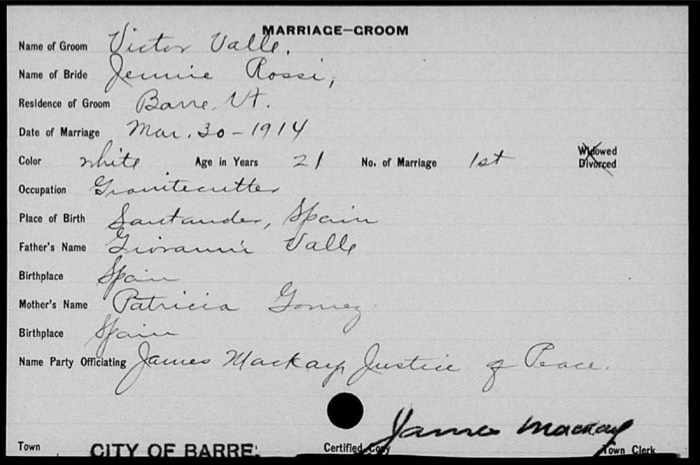 MARRIAGE—GROOM
Name of Groom Victor Valle.
Name of Bride Jennie Rossi,
Residence of Groom Barre, Vt.
Date of Marriage Mar. 30 - 1914
Color white Age in Years 21 No. of Marriage 1st Widowed
Divorced
Occupation Granitecutter
Place of Birth Santander, Spain
Father's Name Giovanni Valle
Birthplace Spain
Mother's Name Patricia Gomez
Birthplace Spain
Name Party Officiating James Mackay Justice of Peace.
Town CITY OF BARRE. Certified Copy James Mackay Town Clerk